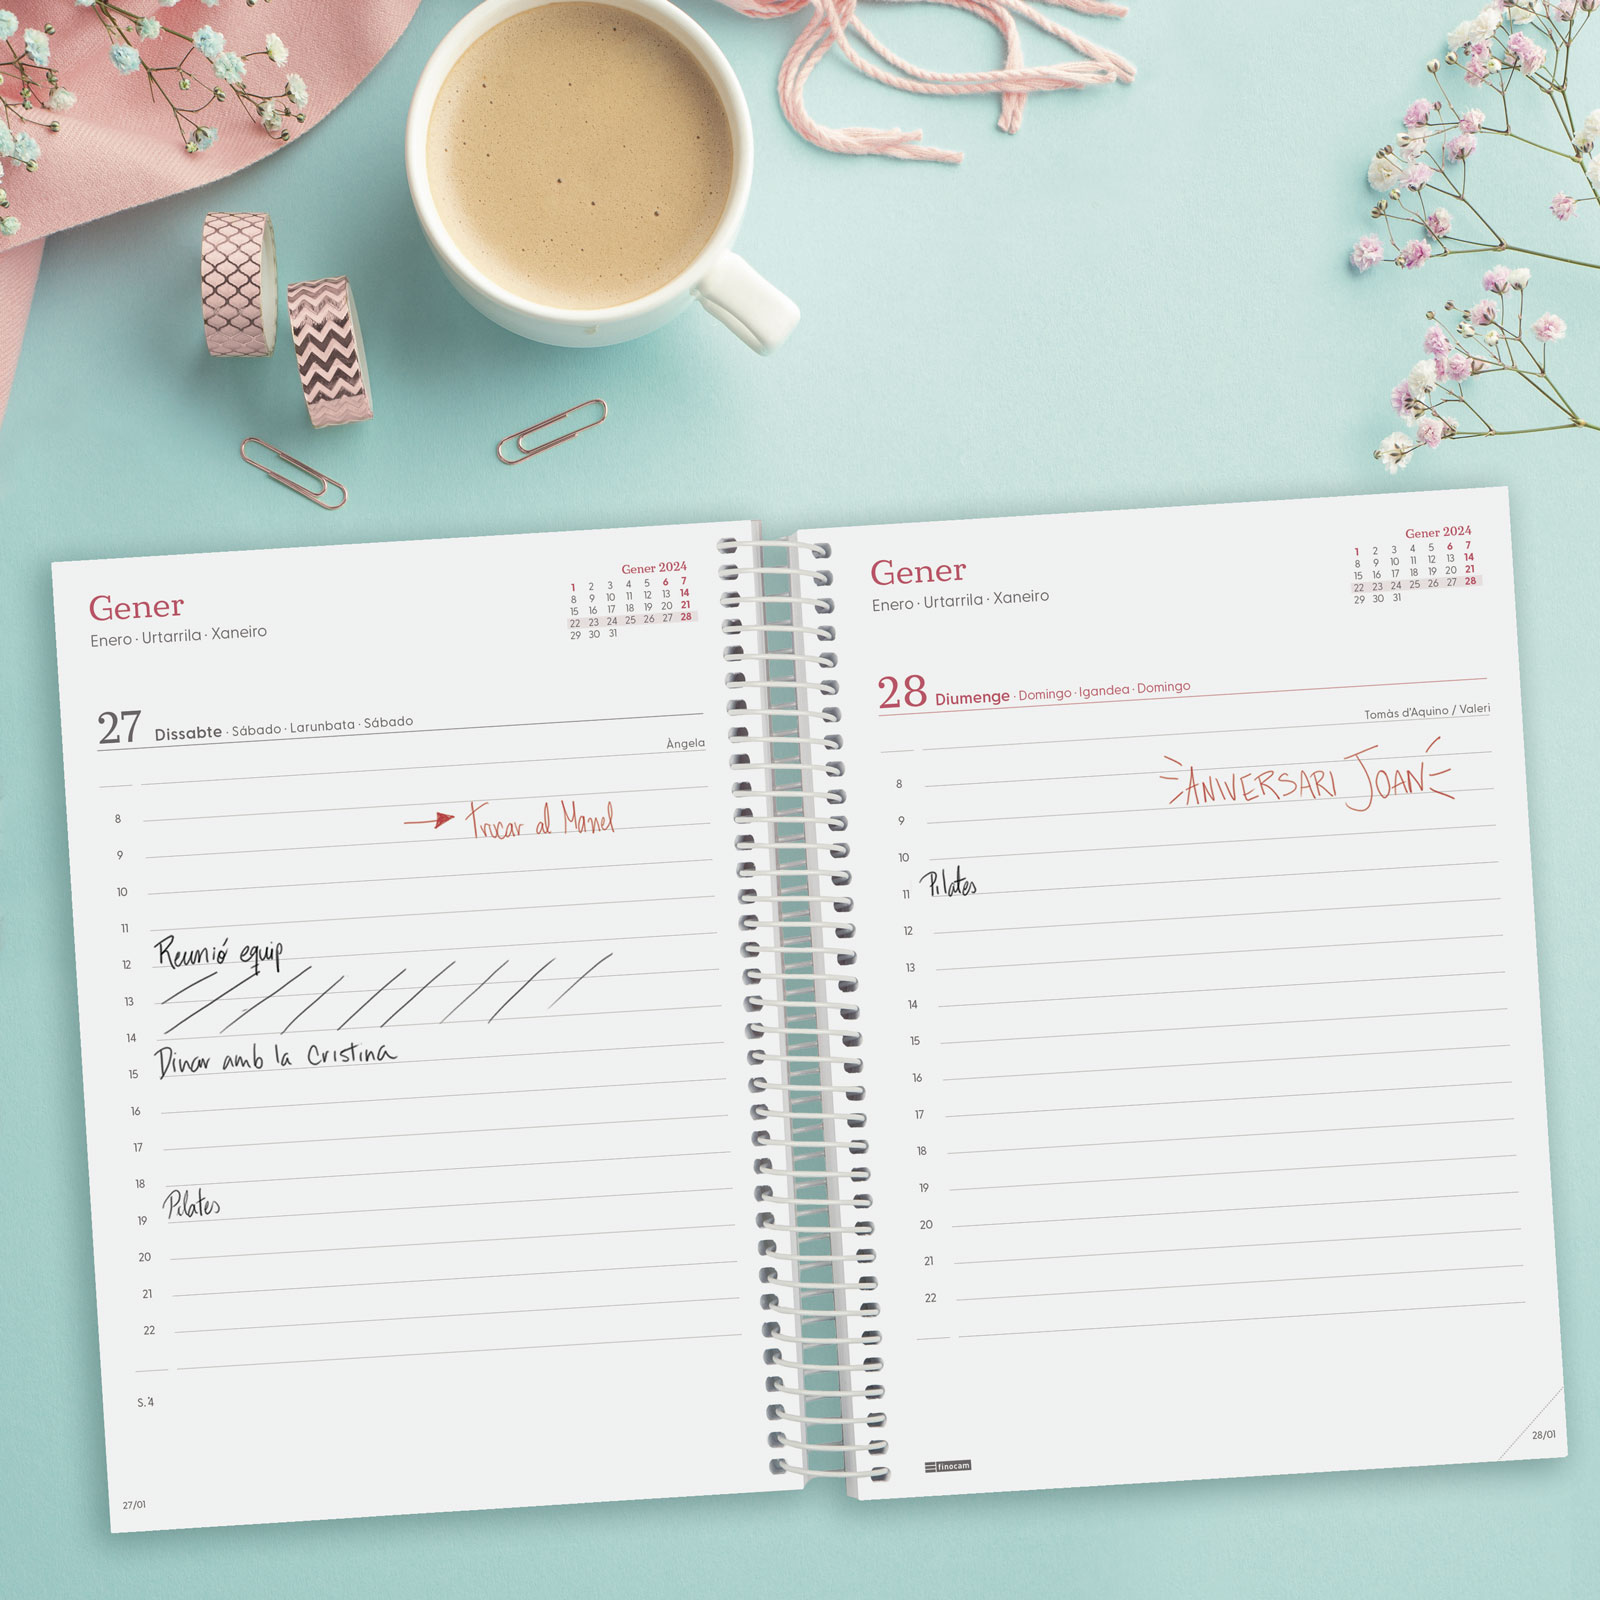 Gener
Enero · Urtarrila · Xaneiro
Gener 2024
1 2 3 4 5 6 7
8 9 10 11 12 13 14
15 16 17 18 19 20 21
22 23 24 25 26 27 28
29 30 31
27 Dissabte · Sábado · Larunbata · Sábado
Àngela
8
→ Trucar al Manel
9
10
11
12 Reunió equip
13
14
15 Dinar amb la Cristina
16
17
18
19 Pilates
20
21
22
S.4
27/01
Gener
Enero · Urtarrila · Xaneiro
Gener 2024
1 2 3 4 5 6 7
8 9 10 11 12 13 14
15 16 17 18 19 20 21
22 23 24 25 26 27 28
29 30 31
28 Diumenge · Domingo · Igandea · Domingo
Tomàs d'Aquino / Valeri
8 ANIVERSARI JOAN
9
10
11 Pilates
12
13
14
15
16
17
18
19
20
21
22
finocam
28/01